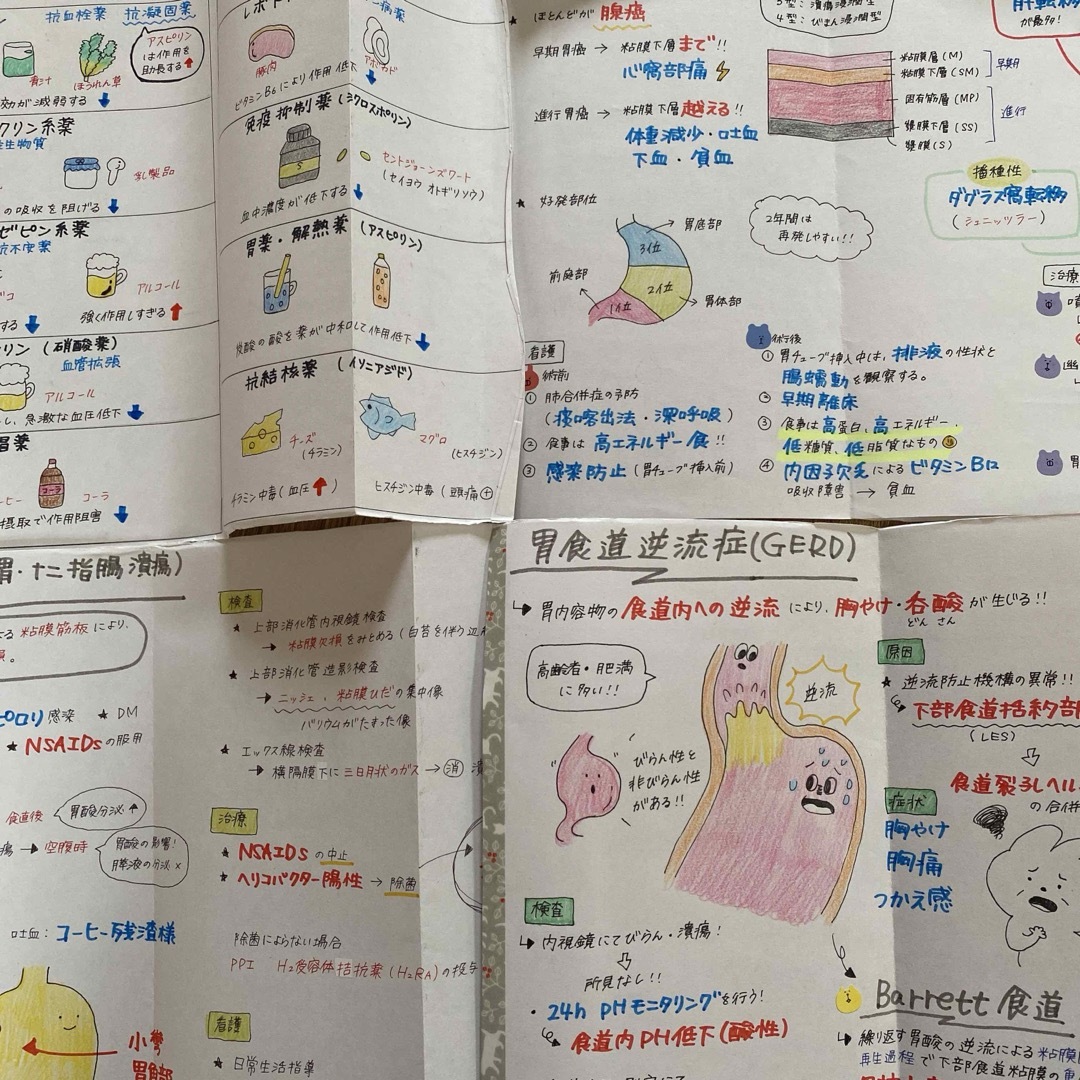 抗血栓薬 抗凝固薬
アスピリン
は作用を
助長する↑
青汁
ほうれん草
効が減弱する↓
クリン系薬
生物質
乳製品
の吸収を阻げる↓
ゼピン系薬
抗不安薬
アルコール
強く作用しすぎる↑
する↓
リン(硝酸薬)
血管拡張
アルコール
し、急激な血圧低下↓
冒薬
コーラ
ーヒー
コーラ
摂取で作用阻害↓
豚肉
アボカド
ビタミンB6により作用低下↓
免疫抑制薬(シクロスポリン)
S
セントジョーンズワート
(セイヨウオトギリソウ)
血中濃度が低下する↓
胃薬・解熱薬(アスピリン)
炭酸の酸を薬が中和して作用低下↓
抗結核薬(イソニアジド)
チーズ
(チラミン)
マグロ
(ヒスチジン)
チラミン中毒(血圧↑)
ヒスチジン中毒(頭痛⊕)
ほとんどが腺癌
4型:びまん浸潤型
早期胃癌→粘膜下層まで!!
心窩部痛
進行胃癌→粘膜下層越える!!
体重減少・吐血
下血・貧血
粘膜層(M)
粘膜下層(SM)
早期
固有筋層(MP)
漿膜下層(SS)
漿膜(S)
進行
が最多!
播種性
ダグラス窩転移
(シュニッツラー)
★ 好発部位
胃底部
3位
前庭部
2位
1位
胃体部
2年間は
再発しやすい!!
治療
看護
術前
① 肺合併症の予防
(痰喀出法・深呼吸)
② 食事は高エネルギー食!!
③ 感染防止(胃チューブ挿入前)
術後
① 胃チューブ挿入中は、排液の性状と
腸蠕動を観察する。
② 早期離床
③ 食事は高蛋白、高エネルギー、
低糖質、低脂質なもの
④ 内因子欠乏によるビタミンB12
吸収障害→貧血
胃・十二指腸潰瘍)
粘膜筋板により、
ピロリ感染 ★DM
★NSAIDsの服用
食直後
胃酸分泌↑
→空腹時
胃酸の影響!
膵液の分泌×
吐血:コーヒー残渣様
小弯
胃角部
検査
★ 上部消化管内視鏡検査
→粘膜欠損をみとめる(白苔を伴う辺
★ 上部消化管造影検査
→ニッシェ、粘膜ひだの集中像
バリウムがたまった像
★ エックス線検査
→横隔膜下に三日月状のガス→消
治療
★ NSAIDsの中止
★ ヘリコバクター陽性→除菌
除菌によらない場合
PPI H2受容体拮抗薬(H2RA)の投与
看護
★ 日常生活指導
胃食道逆流症(GERD)
胃内容物の食道内への逆流により、胸やけ・呑酸が生じる!!
どんさん
高齢者・肥満
に多い!!
逆流
びらん性と
非びらん性
がある!!
原因
★ 逆流防止機構の異常!!
下部食道括約部
(LES)
食道裂孔ヘル
の合併
症状
胸やけ
胸痛
つかえ感
検査
内視鏡にてびらん・潰瘍!
所見なし!!
・24h PHモニタリングを行う!
食道内PH低下(酸性)
Barrett食道
繰り返す胃酸の逆流による粘膜
再生過程で下部食道粘膜の